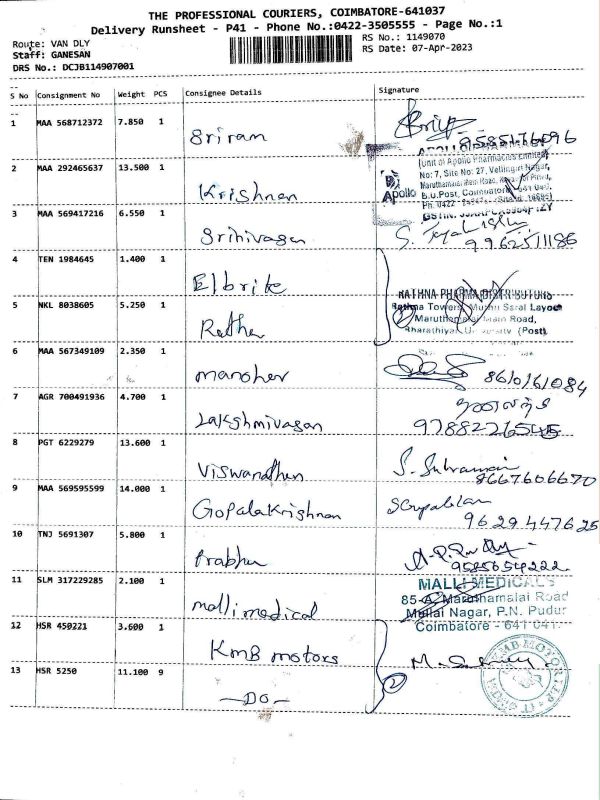 THE PROFESSIONAL COURIERS, COIMBATORE-641037
Delivery Runsheet - P41 - Phone No.:0422-3505555 - Page No.:1
Route: VAN DLY RS No.: 1149070
Staff: GANESAN RS Date: 07-Apr-2023
DRS No.: DCJB114907001
S No Consignment No Weight PCS Consignee Details Signature
1 MAA 568712372 7.850 1 Sriram
2 MAA 292465637 13.500 1 Krishnan
Apollo
No: 7, Site No: 27, Vellingiri Nagar,
B.U.Post, Coimbatore
3 MAA 569417216 6.550 1 Srinivasan
9962511186
4 TEN 1984645 1.400 1 Elbrite
RATHNA PHARMA DISTRIBUTORS
5 NKL 8038605 5.250 1 Rathna
Rathna Towers, Layout
Maruthamalai Main Road,
Bharathiyar University (Post)
6 MAA 567349109 2.350 1 manoher
7 AGR 700491936 4.700 1 Lakshmivasan
8 PGT 6229279 13.600 1 Viswanathan
8667606670
9 MAA 569595599 14.000 1 Gopalakrishnan
9629447625
10 TNJ 5691307 5.800 1 Prabhu
9585654222
11 SLM 317229285 2.100 1 malli medical
MALLI MEDICALS
85-A, Maruthamalai Road
Mullai Nagar, P.N. Pudur
Coimbatore - 641 041.
12 HSR 450221 3.600 1 KMB motors
13 HSR 5250 11.100 9 —DO—
2